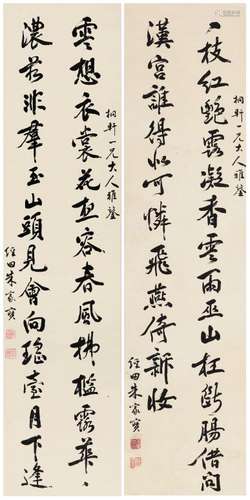 桐軒一兄大人雅鑒
一枝紅艷露凝香雲雨巫山枉斷腸借問
漢宮誰得似可憐飛燕倚新妝
經田朱家寶
桐軒一兄大人雅鑒
雲想衣裳花想容春風拂檻露華
濃若非羣玉山頭見會向瑤臺月下逢
經田朱家寶